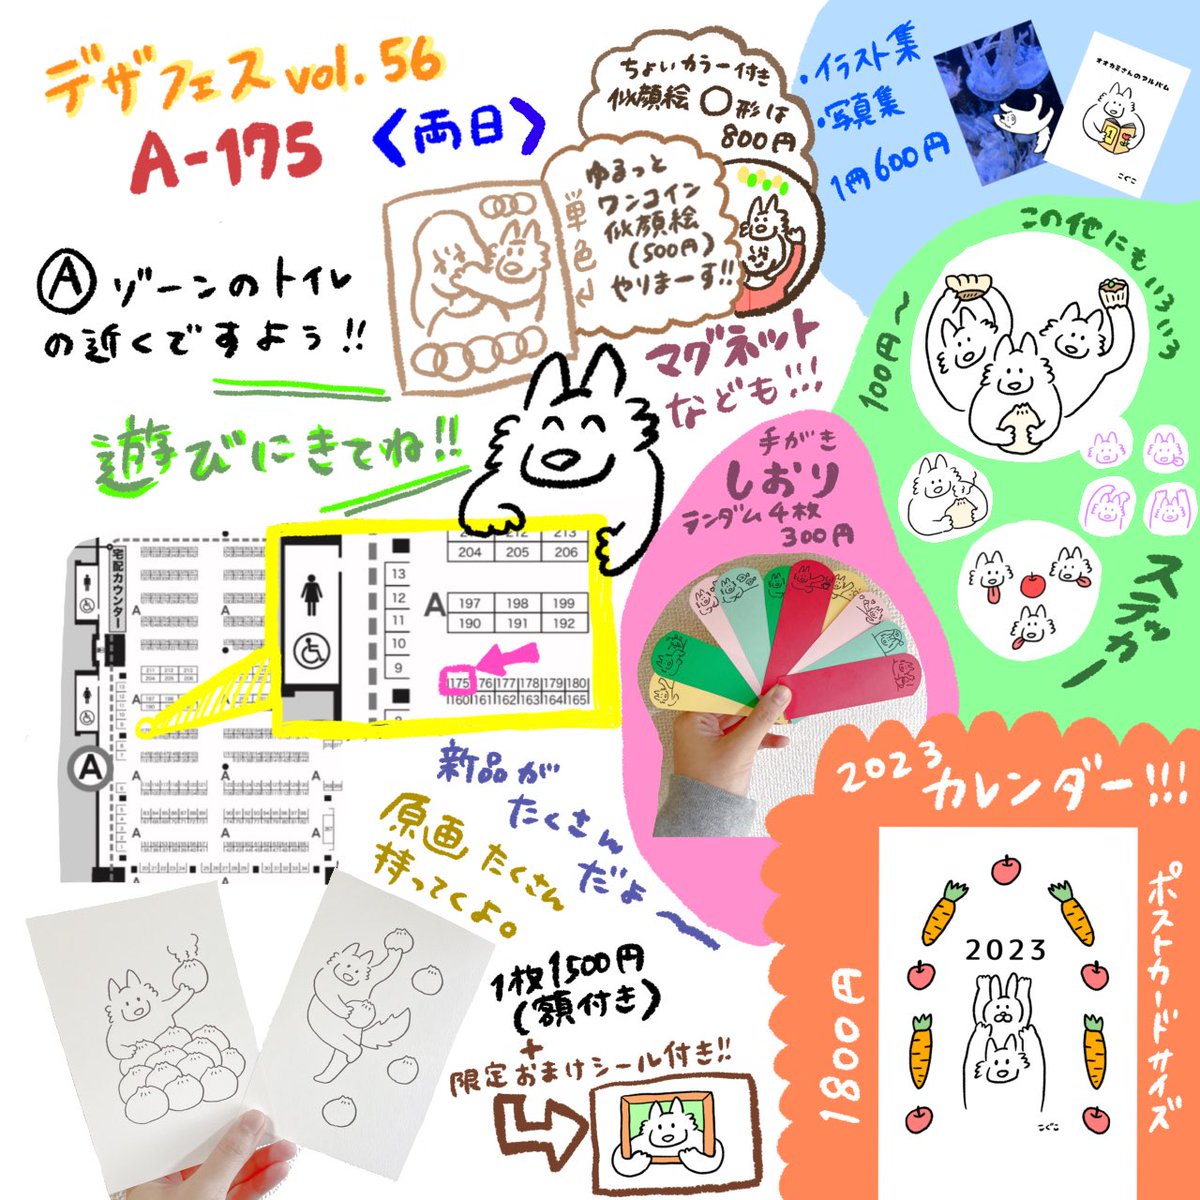 デザフェス vol. 56
A-175 〈両日〉
Ⓐ ゾーンのトイレ
の近くですよう!!
遊びにきてね!!
ちょいカラー付き
似顔絵 ○形は
800円
ゆるっと
ワンコイン
似顔絵
(500円)
やりまーす!!
単色
・イラスト集
・写真集
1冊600円
オオカミさんのアルバム
こぐこ
この他にもいろいろ
100円〜
ステッカー
マグネット
なども!!!
手がき
しおり
ランダム4枚
300円
宅配カウンター
A
211 212 213
204 205 206
197 198 199
190 191 192
175 176 177 178 179 180
160 161 162 163 164 165
13
12
11
10
9
A
A
A
A
新品が
たくさん
だよ〜
原画たくさん
持ってくよ。
1枚1500円
(額付き)
+
限定おまけシール付き!!
2023
カレンダー!!!
ポストカードサイズ
1800円
2023
こぐこ